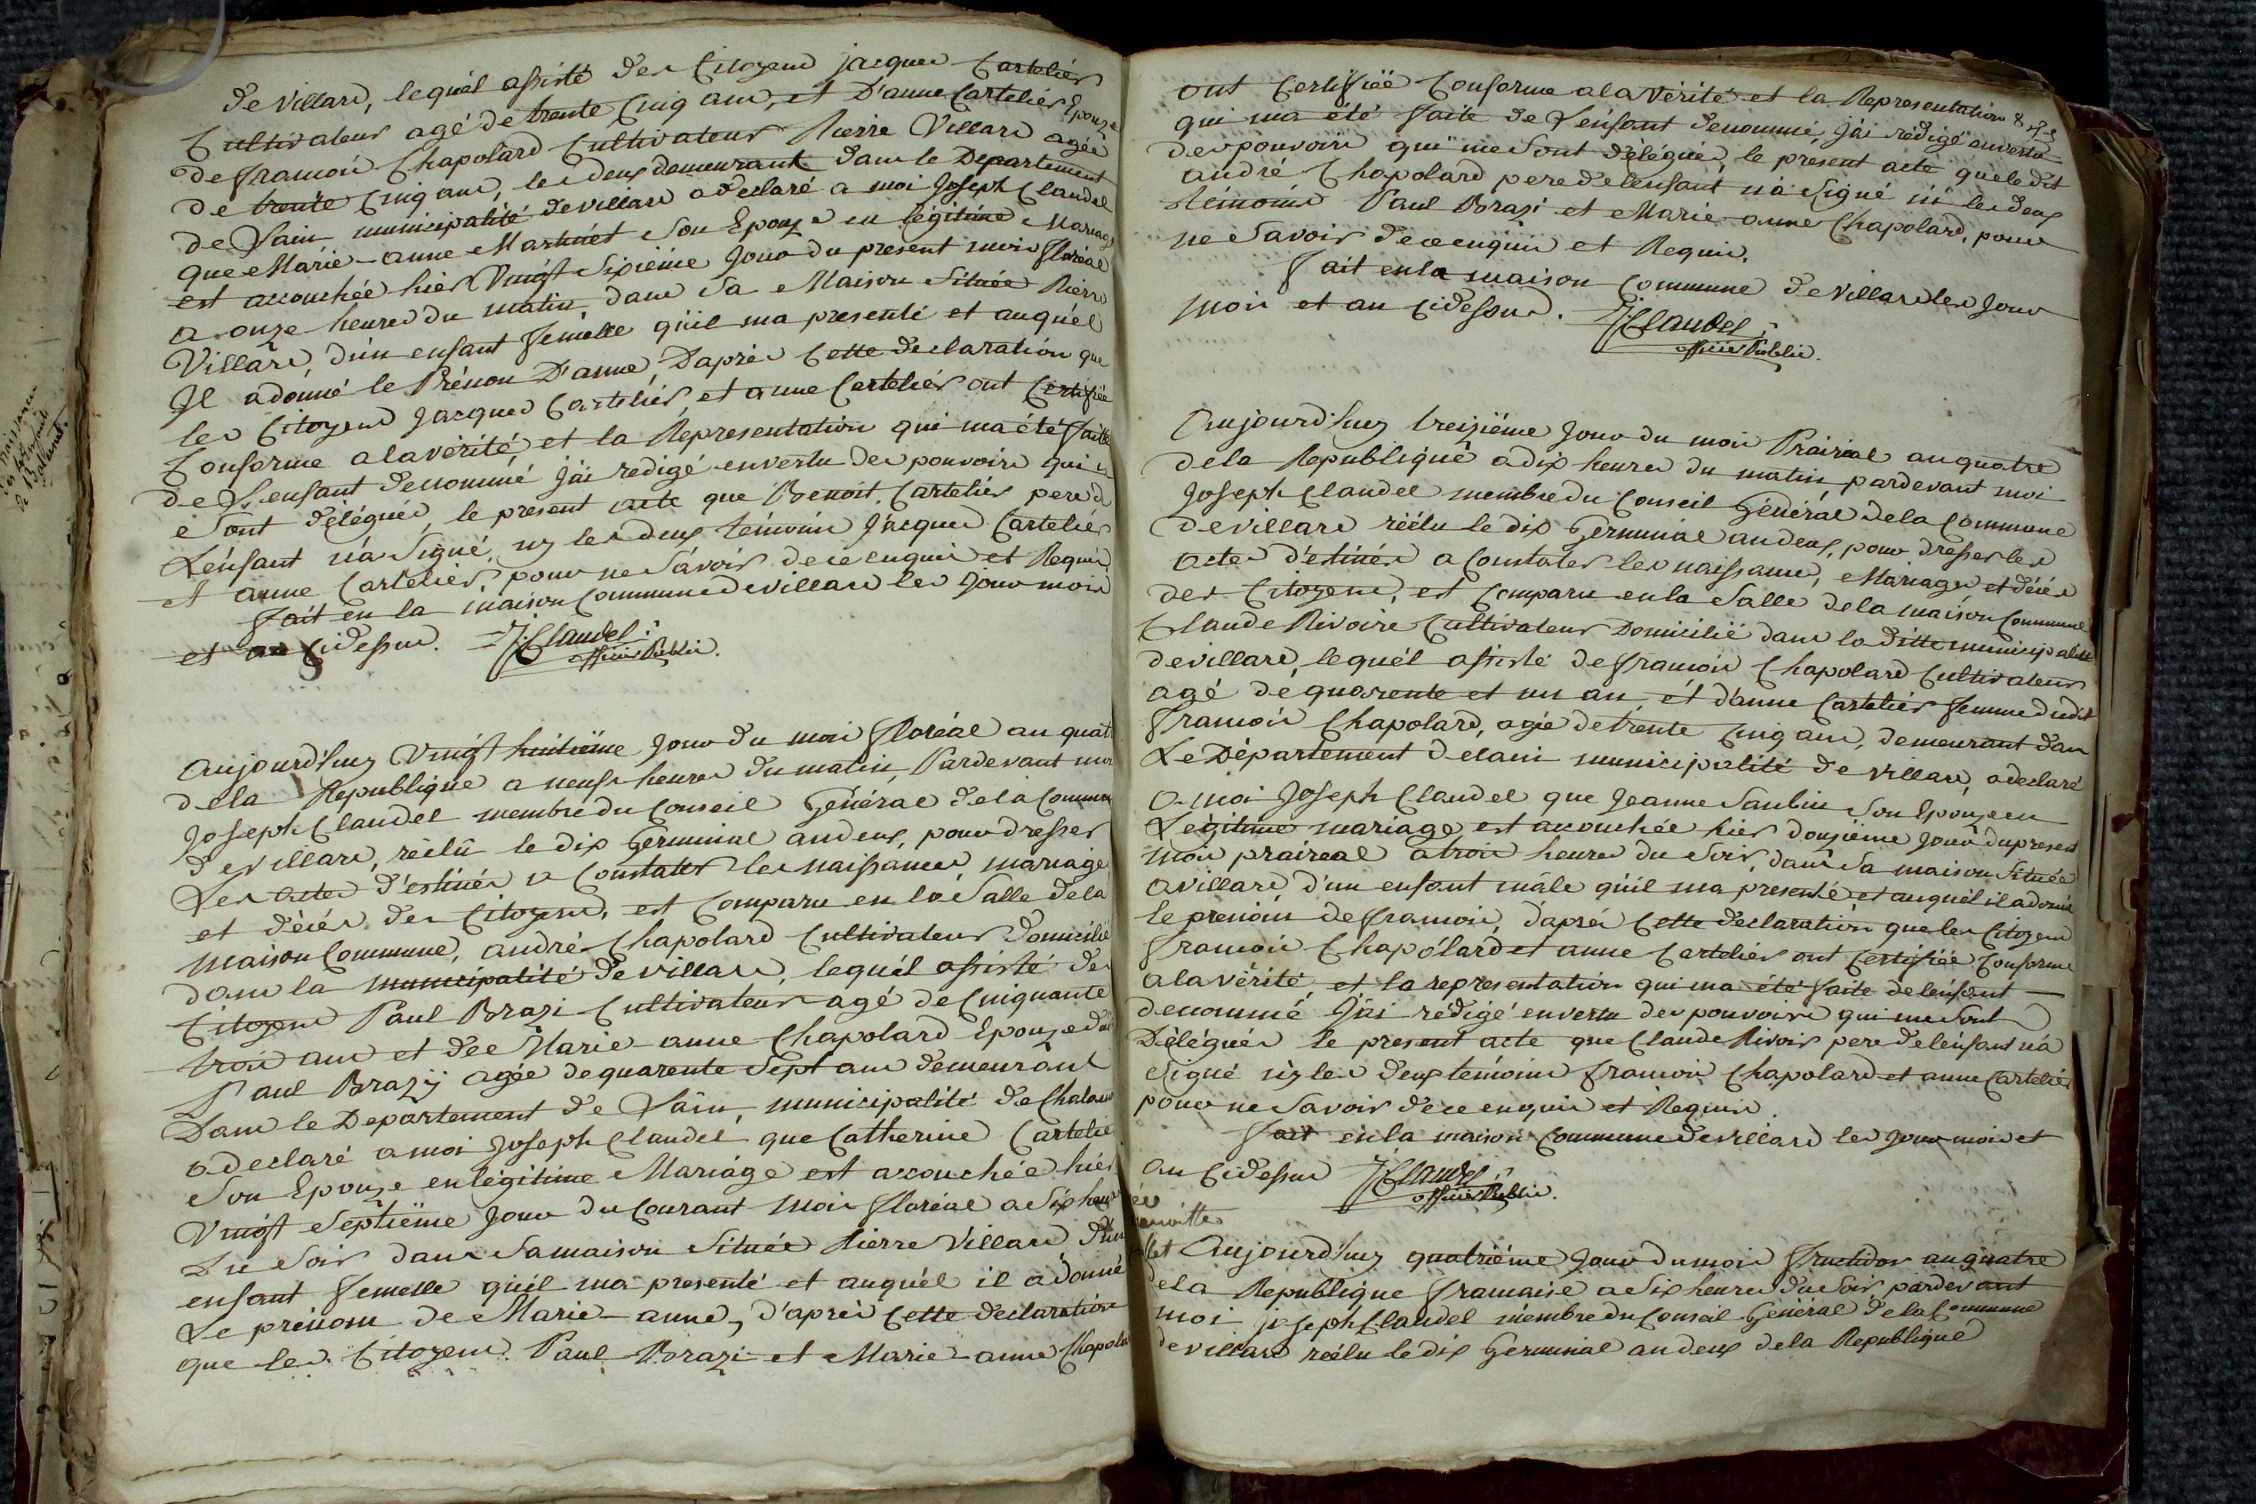 de villard, lequél assisté des Citoyend jacques Carteliér
Cultivateur agé de trente Cinq and, et D'anne Carteliér Epouze
de françois Chapolard Cultivateur Pierre Villard agée
de trente Cinq and, les deux demeurant dans le Departement
de Lain municipalité de villard a declaré a moi Joseph Claudel
que Marie-anne Martinet Son Epouze en légitime Mariage
est accouchée hiér Vingt Sixiéme Jour du present mois floréal
a onze heures du matin, dans Sa Maison Située Pierre
Villard, d'un enfant femelle qu'il ma presenté et auquél
Il a donné le Prénon D'anne, D'aprés Cette declaration que
les Citoyend Jacqued Carteliér, et anne Carteliér ont Certifiée
Conforme a la vérité, et la Representation qui ma été faitte
de L'enfant denommé J'ai redigé en vertu des pouvoirs qui m
e Sont délégués, le present acte que Benoit Carteliér pere de
L'enfant n'a Signé, ny les deux témoins Jacqued Carteliér
et anne Carteliér pour ne Sávoir de ce enquis et Requis.
fait en la maison Commune de villard les Jour mois
et an Cidessus. J: Claudel:
officier Public.
Aujourd'huy Vingt huitiéme Jour du mois floréal an quat
de la Republique a neuf heures du matin, Pardevant moi
Joseph Claudel membre du Conseil Général de la Commun
de villard, réélû le dix Germinal an deux, pour dresser
Les actes d'estinés a Constater les naissances mariage
et décés des Citoyend, est Comparu en la Salle de la
maison Commune, andré Chapolard Cultivateur Domicilié
dans la municipalité de villard, lequél assisté des
Citoyend Paul Brazi Cultivateur agé de Cinquante
trois and et dee Marie-anne Chapolard Epouze du
Paul Brazij agée de quarente Sept and demeurant
Dans le Departement de Lain, municipalité de Chalam
a declaré a moi Joseph Claudel que Catherine Cartelié
Son Epouze en légitime Mariáge est accouchée hiér
Vingt Séptiéme Jour du Courant mois floréal a Six heures
Du Soir dans Sa maison Située Pierre Villard, d'un
enfant femelle qu'il ma presenté et auquél il a donné
Le prénom de Marie-anne, d'aprés Cette declaration
que les Citoyend Paul Brazi et Marie-anne Chapola
ont Certifiée Conforme a la Vérité et la Representation
qui ma été faite de L'enfant denommé, J'ai rédigé en vertu
des pouvoirs qui me Sont délégués, le present acte que le dit
andré Chapolard pere de lenfant n'a Signé ni les deux
témoins Paul Brazi et Marie-anne Chapolard, pour
ne Savoir de ce enquis et Requis.
fait en la maison Commune de Villard les Jour
mois et an Cidessus. J: Claudel:
officier Public.
Aujourd'huy treiziéme Jour du mois Prairéal an quatre
de la Republique a dix heures du matin pardevant moi
Joseph Claudel membre du Conseil Général de la Commune
de villard réélu le dix Germinal an deux, pour dresser les
actes d'estinés a Constater les naissances, Mariages, et décés
des Citoyend, est Comparu en la Salle de la maison Commune
Claude Rivoire Cultivateur Domicilié dans la ditte municipalité
de villard, lequél assisté de françois Chapolard Cultivateur
agé de quarente et un an, et d'anne Carteliér femme du dit
françois Chapolard, agée de trente Cinq and, demeurant dans
Le Département de lain municipalité de villard, a declaré
a moi Joseph Claudel que Jeanne Saubin Son Epouze en
Légitime mariage est accouchée hiér douziéme Jour du present
mois praireal a trois heures du Soir, dans Sa maison Située
a villard d'un enfant mâle qu'il ma presenté et auquél il a donné
le prenoin de françois, d'aprés Cette declaration que les Citoyend
françois Chapolard et anne Carteliér ont Certifiée Conforme
a la vérité, et la representation qui ma été faite de lenfant
denommé J'ai rédigé en vertu des pouvoirs qui me Sont
Délégués le present acte que Claude Rivoir pere de lénfant n'a
Signé ny les deux témoins françois Chapolard et anne Carteliér
pour ne Savoir de ce enquis et Requis.
fait en la maison Commune de villard les Jour mois et
an Cidessus J: Claudel:
officier Public.
Aujourd'huy quatriéme Jour du mois fructidor an quatre
de la Republique françaisé a Six heures du Soir pardevant
moi joseph Claudel mémbre du Conseil Général de la Commune
de villard réélu le dix Germinal an deux de la Republique